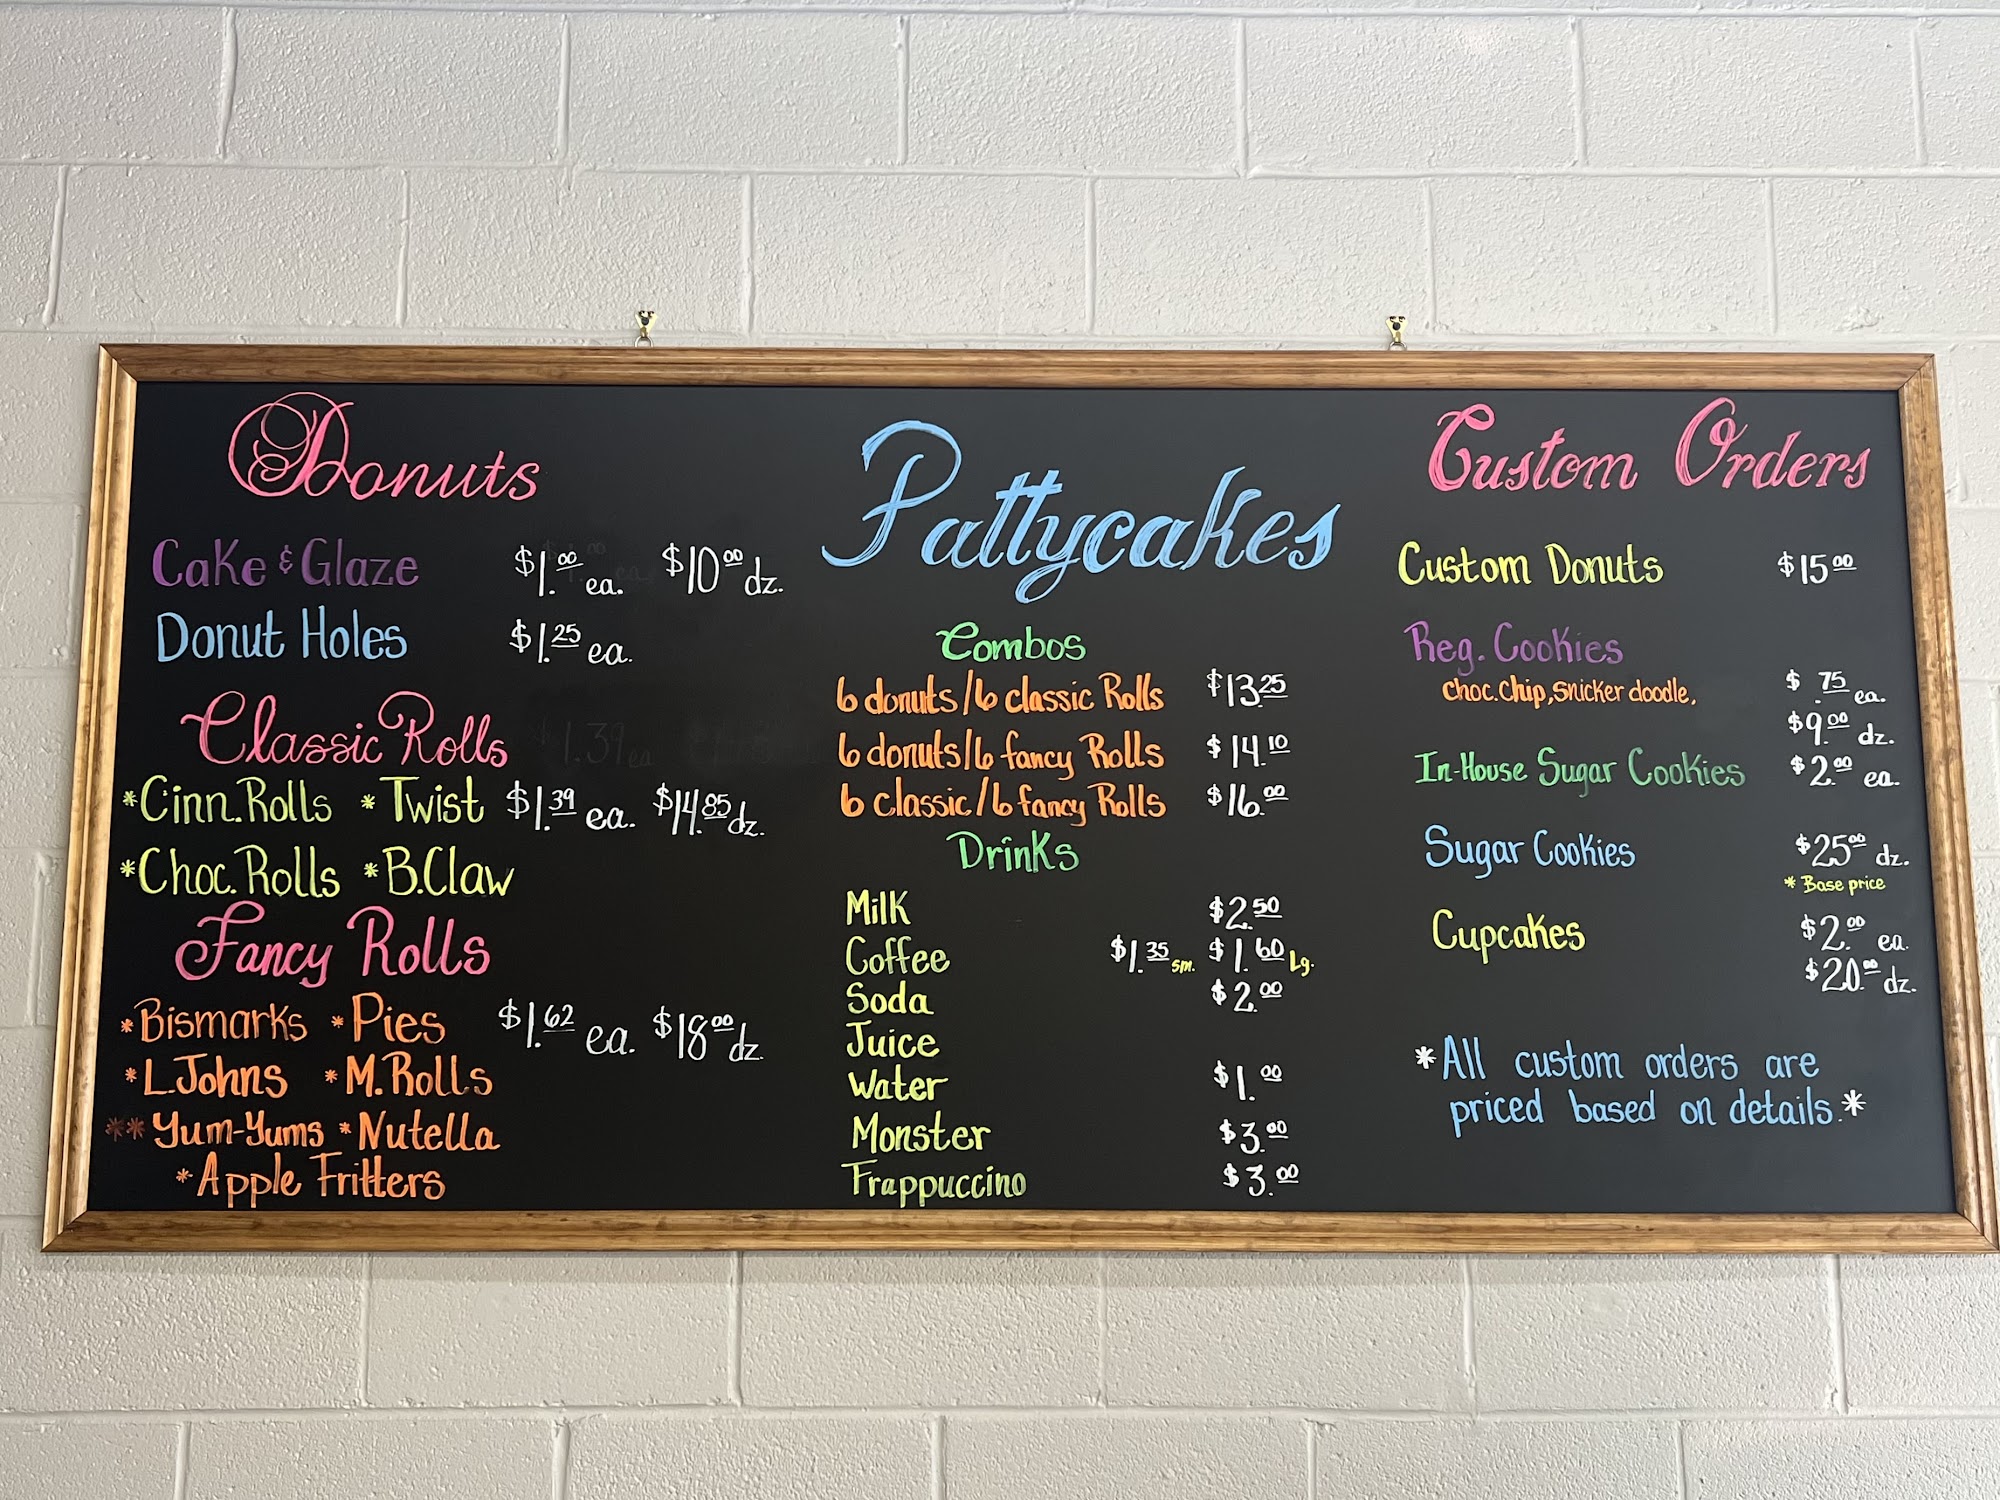 Donuts
Cake & Glaze $1.00 ea. $10.00 dz.
Donut Holes $1.25 ea.
Classic Rolls
*Cinn. Rolls *Twist $1.39 ea. $14.85 dz.
*Choc. Rolls *B.Claw
Fancy Rolls
*Bismarks *Pies $1.62 ea. $18.00 dz.
*L.Johns *M.Rolls
**Yum-Yums *Nutella
*Apple Fritters
Pattycakes
Combos
6 donuts/6 classic Rolls $13.25
6 donuts/6 fancy Rolls $14.10
6 classic/6 fancy Rolls $16.00
Drinks
Milk $2.50
Coffee $1.35 sm. $1.60 Lg.
Soda $2.00
Juice
Water $1.00
Monster $3.00
Frappuccino $3.00
Custom Orders
Custom Donuts $15.00
Reg. Cookies
Choc.Chip, Snicker doodle, $.75 ea.
$9.00 dz.
In-House Sugar Cookies $2.00 ea.
Sugar Cookies $25.00 dz.
* Base price
Cupcakes $2.00 ea.
$20.00 dz.
*All custom orders are
priced based on details.*